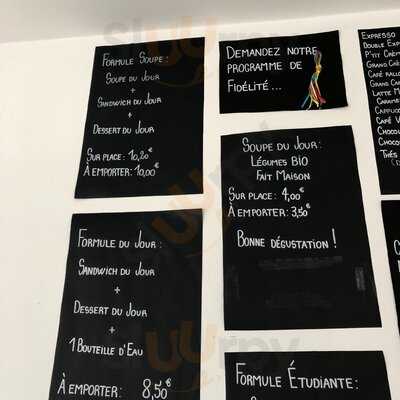 Formule Soupe :
Soupe du Jour
+
Sandwich du Jour
+
Dessert du Jour
Sur place : 10,20€
À emporter : 10,00€
Demandez notre
programme de
Fidélité...
Expresso
Double Exp
P'tit Crèm
Grand Crè
Café
Grand Ca
Latte M
Caram
Cappucc
Café V
Chocol
Chocol
Thés
Soupe du Jour :
Légumes BIO
Fait Maison
Sur place : 4,00€
À emporter : 3,50€
Bonne dégustation !
Formule du Jour :
Sandwich du Jour
+
Dessert du Jour
+
1 Bouteille d'Eau
À emporter : 8,50€
Formule Étudiante :